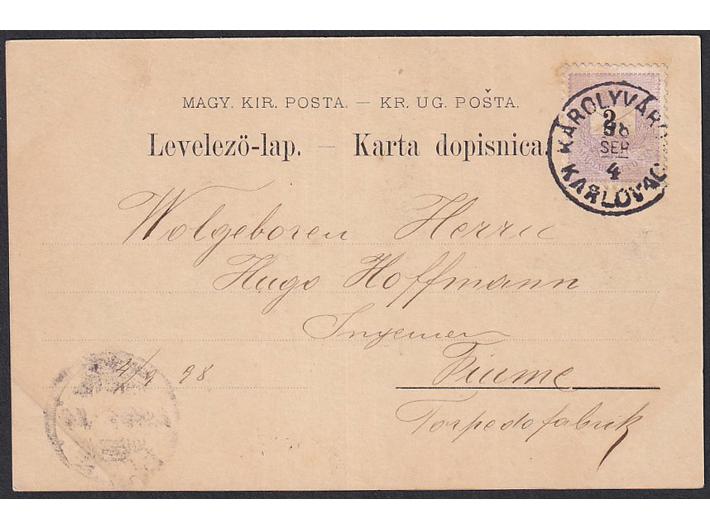 MAGY. KIR. POSTA. — KR. UG. POŠTA.
Levelező-lap. — Karta dopisnica.
KÁROLYVÁRO
98
SEP
4
KARLOVAC
Wolgeboren Herrn
Hugo Hoffmann
Ingenieur
4/9 98
Fiume
Torpedofabrik